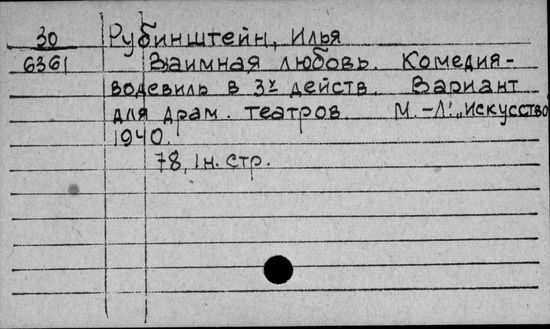 30 Рубинштейн, Илья
6361 Взаимная любовь. Комедия-
водевиль в 3х действ. Вариант
для драм. театров. М.-Л., "Искусство"
1940.
78, 1н. стр.